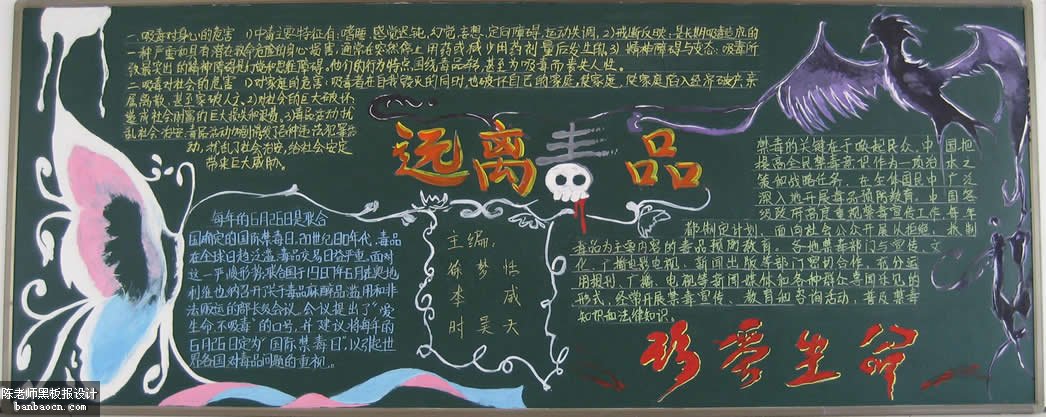 一、吸毒对身心的危害 1)中毒主要特征有:嗜睡、感觉迟钝、幻觉、妄想、定向障碍、运动失调。2)戒断反应:是长期吸毒造成的
一种严重和具有潜在致命危险的身心损害,通常在突然停止用药或减少用药剂量后发生的。3)精神障碍与变态:吸毒所
致最突出的精神障碍是幻觉和思维障碍。他们的行为特点围绕毒品转,甚至为吸毒而丧失人性。
二、吸毒对社会的危害 1)对家庭的危害:吸毒者在自我毁灭的同时,也破坏自己的家庭,使家庭陷入经济破产、亲
属离散、甚至家破人亡。2)对社会的巨大破坏:
造成社会财富的巨大损失和浪费。3)毒品活动扰
乱社会治安:毒品活动加剧诱发了各种违法犯罪活
动,扰乱了社会治安,给社会安定
带来巨大威胁。
远离毒品
每年的6月26日是联合
国确定的国际禁毒日。20世纪80年代,毒品
在全球日趋泛滥,毒品交易日益严重。面对
这一严峻形势,联合国于1987年6月在奥地
利维也纳召开了关于毒品麻醉品滥用和非
法贩运的部长级会议。会议提出了"爱
生命,不吸毒"的口号,并建议将每年的
6月26日定为"国际禁毒日",以引起世
界各国对毒品问题的重视。
主编:
徐梦恬
李成
时昊天
禁毒的关键在于唤起民众。中国把
提高全民禁毒意识作为一项治本之
策和战略任务,在全体国民中广泛
深入地开展毒品预防教育。中国各
级政府高度重视禁毒宣传工作,每年
都制定计划,面向社会公众开展以拒绝、抵制
毒品为主要内容的毒品预防教育。各地禁毒部门与宣传、文
化、广播电影电视、新闻出版等部门密切合作,充分运
用报刊、广播、电视等新闻媒体和各种群众喜闻乐见的
形式,经常开展禁毒宣传、教育和咨询活动,普及禁毒
知识和法律知识。
珍爱生命
陈老师黑板报设计
banbaocn.com